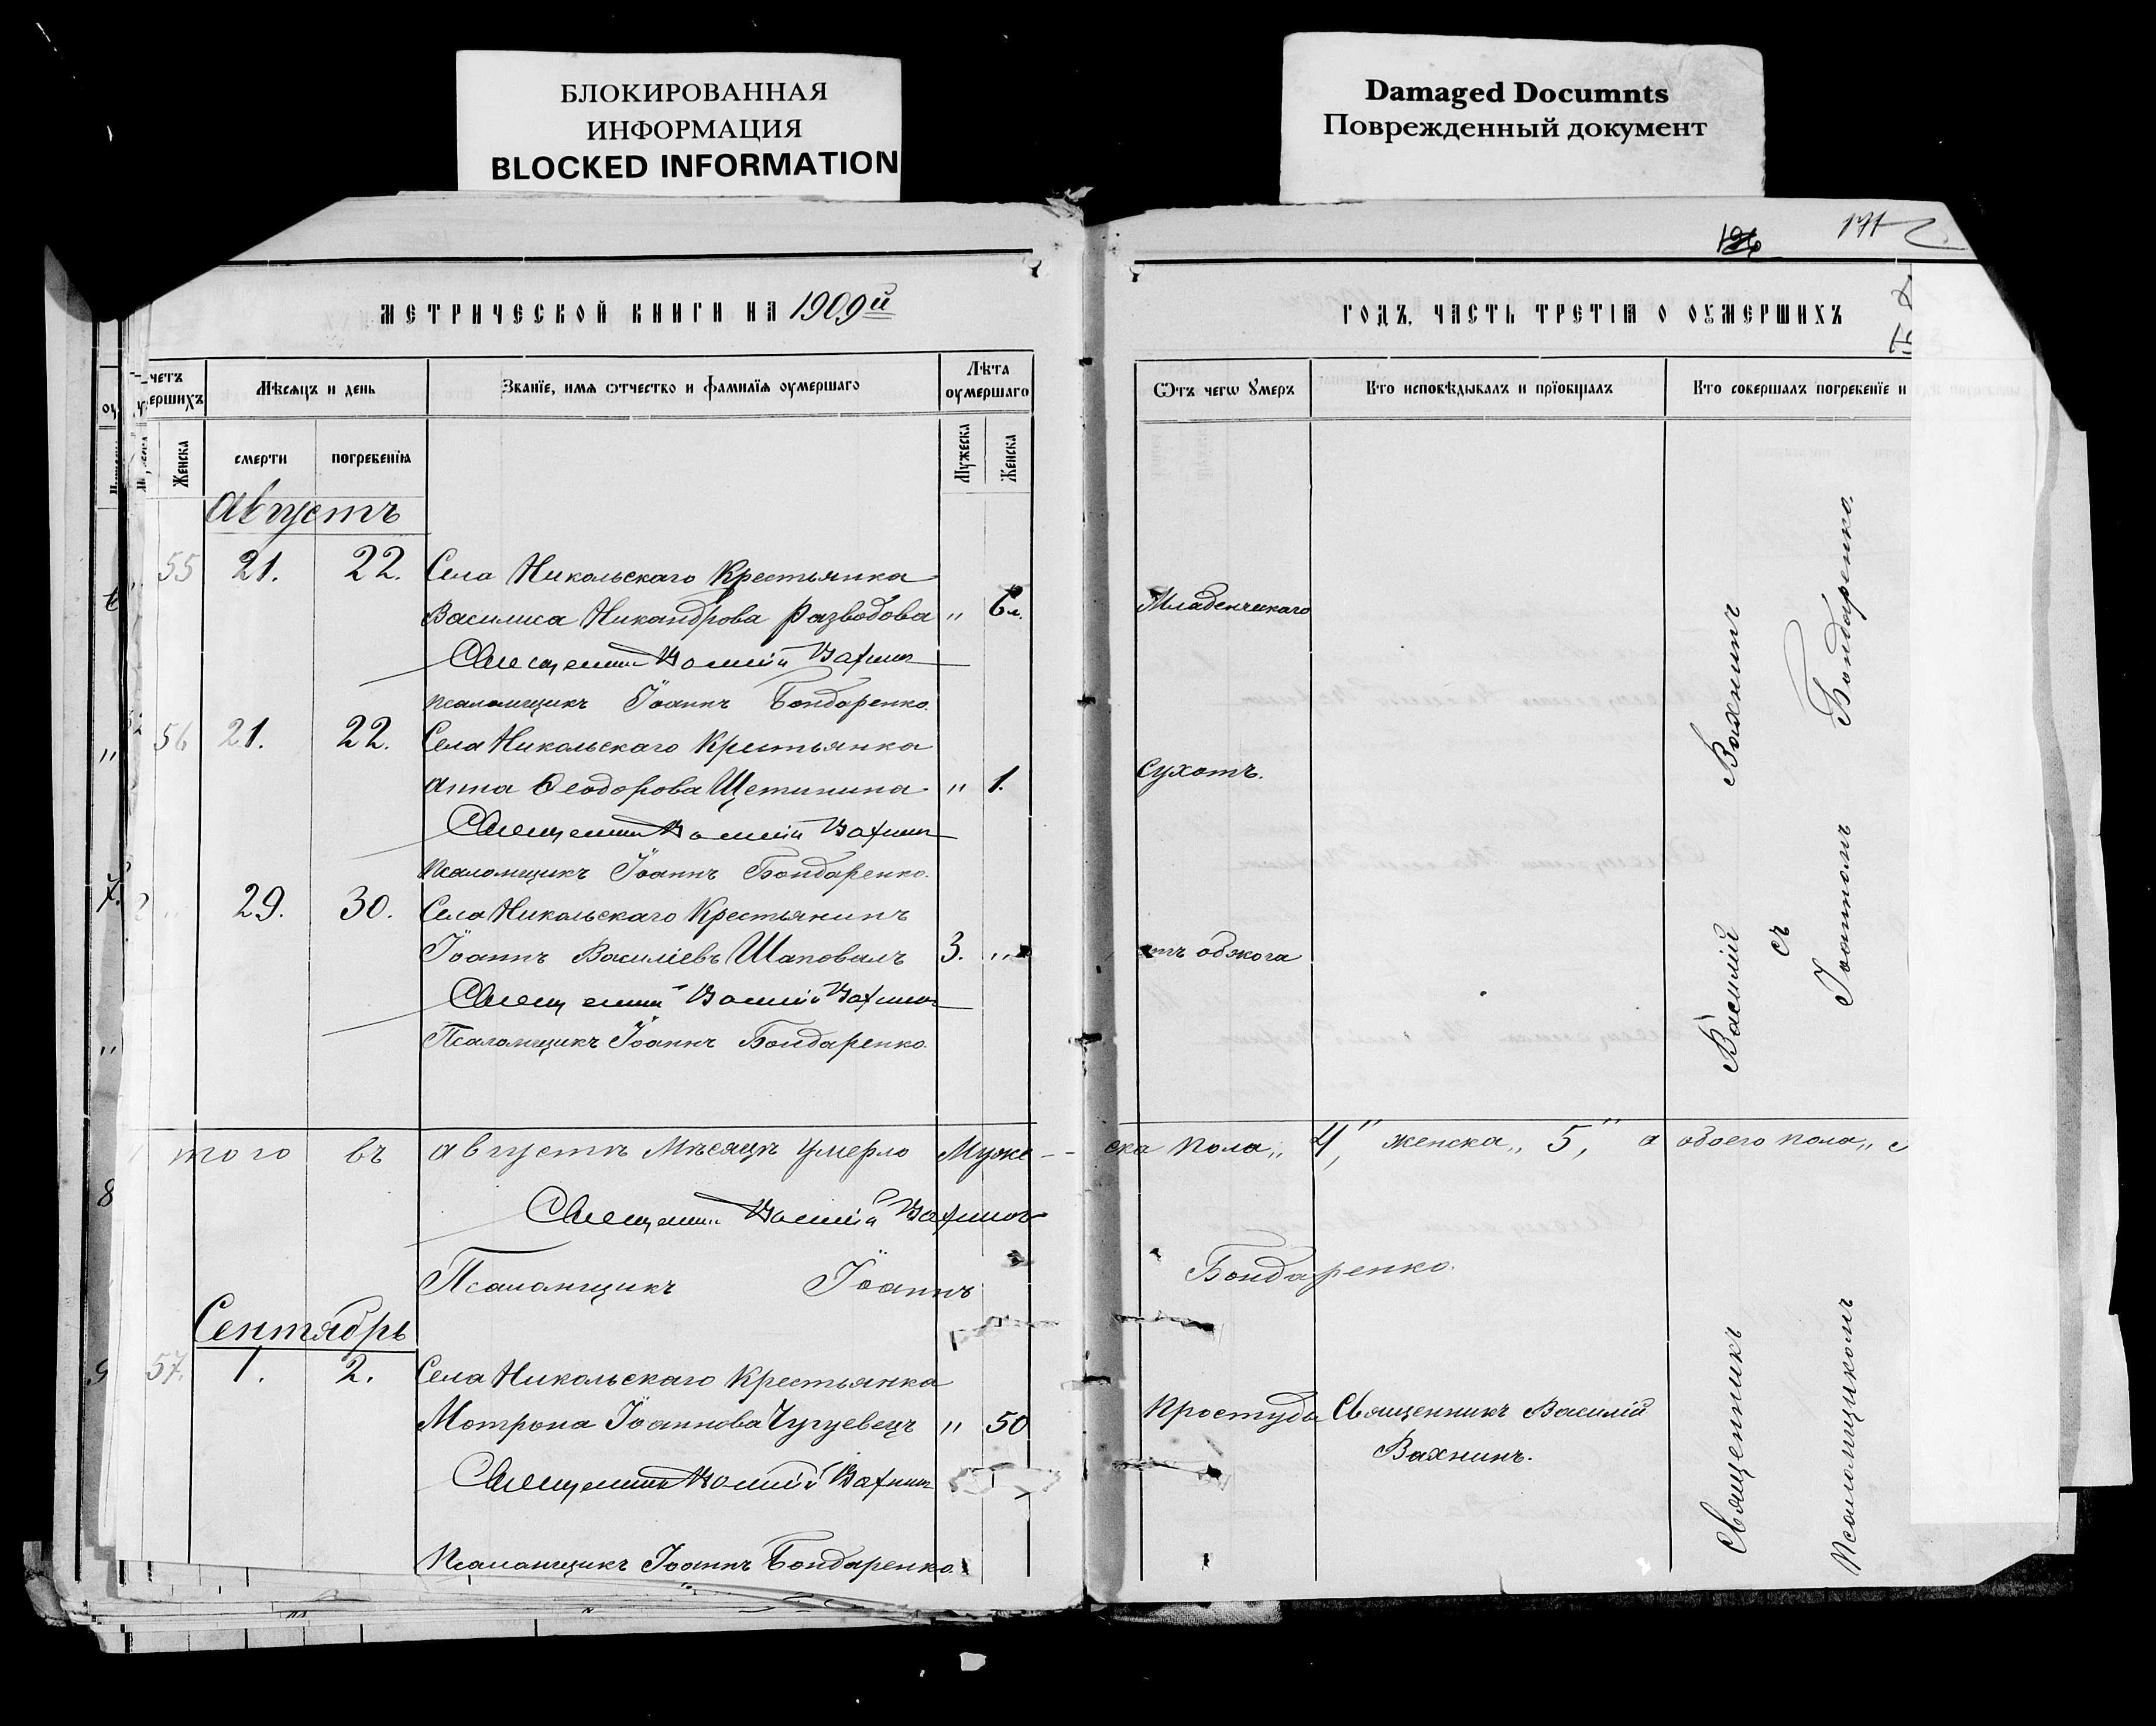 БЛОКИРОВАННАЯ
ИНФОРМАЦИЯ
BLOCKED INFORMATION
Damaged Documnts
Поврежденный документ
126
171
МЕТРИЧЕСКОЙ КНИГИ НА 1909й
ГОДЪ, ЧАСТЬ ТРЕТІѦ О ОУМЕРШИХЪ
четъ
ершихъ
Женска
Мѣсяцъ и день
смерти
погребенїѧ
Званїе, имѧ ѿтчество и фамилїѧ оумершаго
Лѣта
оумершаго
Мужеска
Женска
Ѿтъ чегѡ Ꙋмеръ
Кто исповѣдывалъ и прїобщалъ
Кто совершалъ погребенїе и
Августъ
55 21. 22. Села Никольскаго Крестьянка
Василиса Никандрова Разводова " 6 л. Младенческаго
Священникъ Василій Вахнинъ
псаломщикъ Іоаннъ Бондаренко.
56 21. 22. Села Никольскаго Крестьянка
Анна Ѳеодорова Щетинина " 1. Сухотъ.
Священникъ Василій Вахнинъ
Псаломщикъ Іоаннъ Бондаренко.
29. 30. Села Никольскаго Крестьянинъ
Іоаннъ Василіевъ Шаповалъ 3. " отъ обжога
Священникъ Василій Вахнинъ
Псаломщикъ Іоаннъ Бондаренко.
того въ августѣ мѣсяцѣ умерло Муже-
ска пола „ 4," женска „ 5," а обоего пола „
Священникъ Василій Вахнинъ
Псаломщикъ Іоаннъ Бондаренко.
Сентябрь
57. 1. 2. Села Никольскаго Крестьянка
Мотрона Іоаннова Чугуевецъ " 50 Простуды Священникъ Василій
Вахнинъ.
Священникъ Василій Вахнинъ
Псаломщикъ Іоаннъ Бондаренко.
Священникъ Василій Вахнинъ
съ
Псаломщикомъ Іоанномъ Бондаренко.